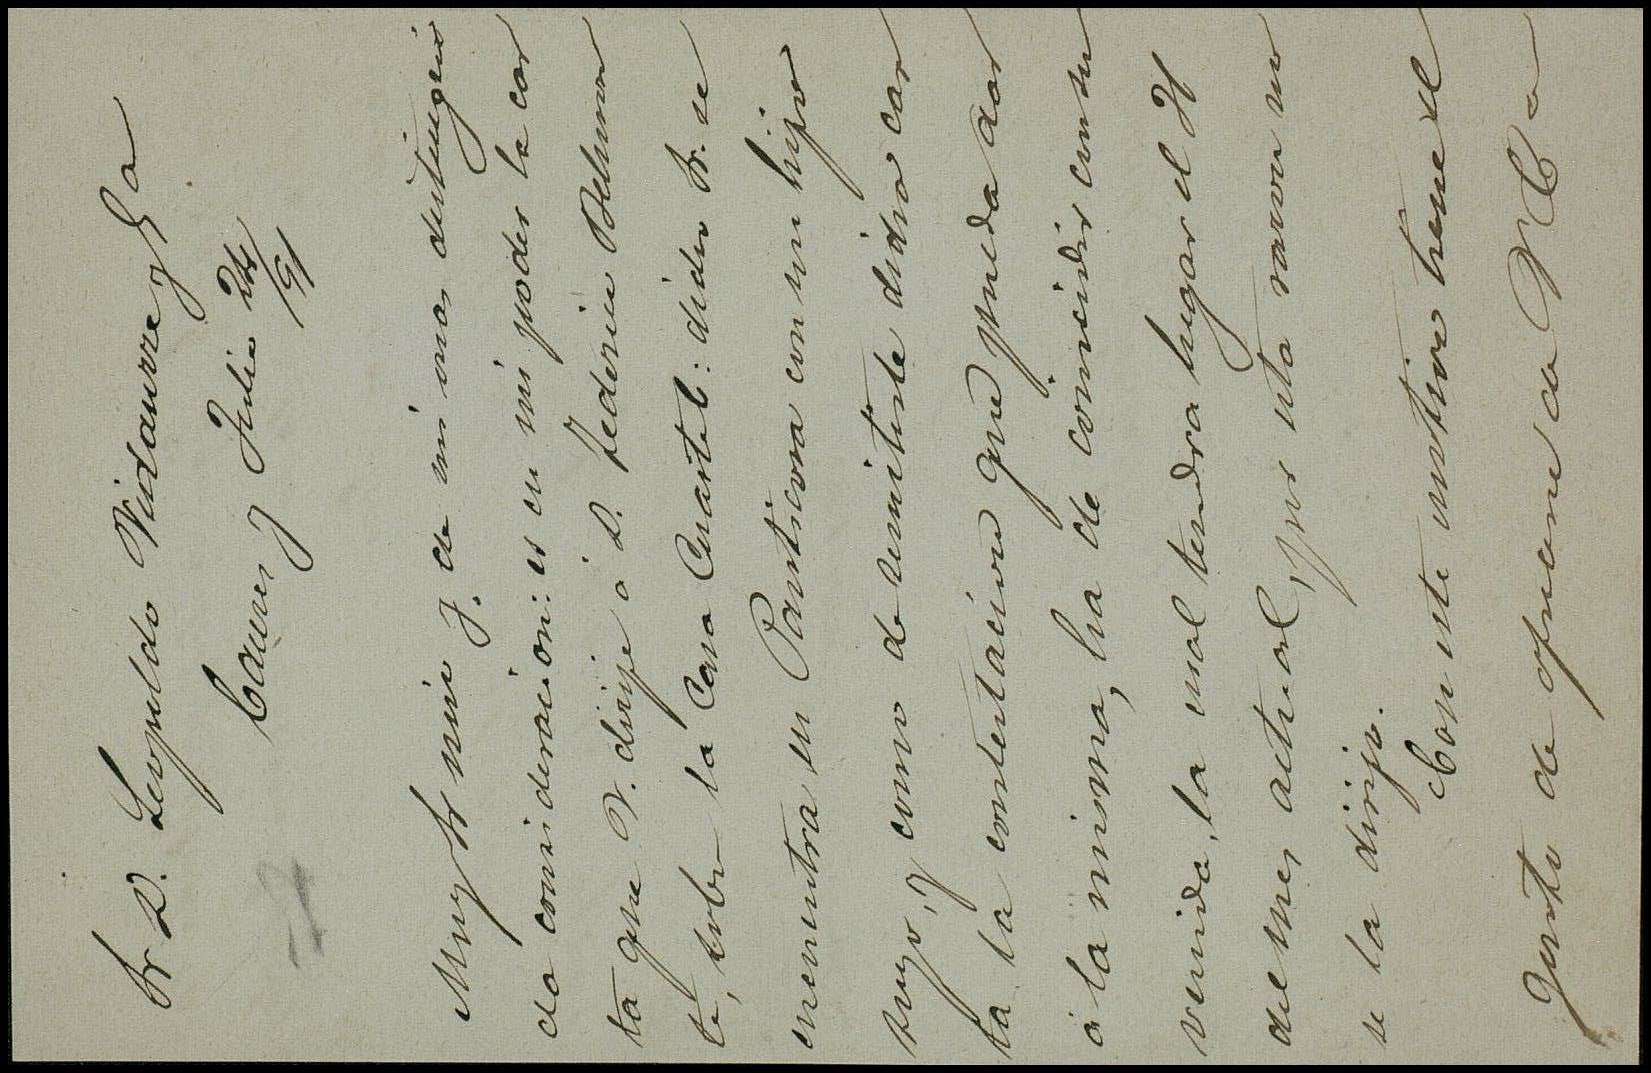 Sr D. Leopoldo Vidaurre y Ca
Cauns y Julio 24/91
Muy Sr mio y de mi mas distingui
da consideracion: es en mi poder la car
ta que V. dirije á D. Federico
te, sobre la Casa Cuartel: dicho Sr. se
encuentra en Panticosa con un hijo
suyo, y como de remitirle dicha car
ta la contestacion que pueda dar
á la misma, ha de coincidir con su
venida, la cual tendra lugar el 31
del mes actual, por esta razon no
se la dirijo.
Con este motivo tiene el
gusto de ofrecerse a V.